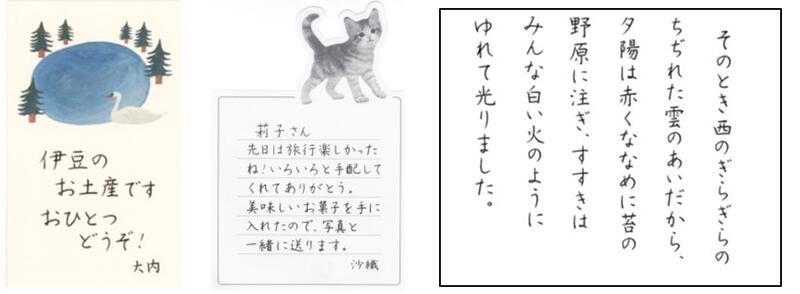 伊豆の
お土産です
おひとつ
どうぞ！
大内
莉子さん
先日は旅行楽しかった
ね！いろいろと手配して
くれてありがとう。
美味しいお菓子を手に
入れたので、写真と
一緒に送ります。
沙織
そのとき西のぎらぎらの
ちぢれた雲のあいだから、
夕陽は赤くななめに苔の
野原に注ぎ、すすきは
みんな白い火のように
ゆれて光りました。